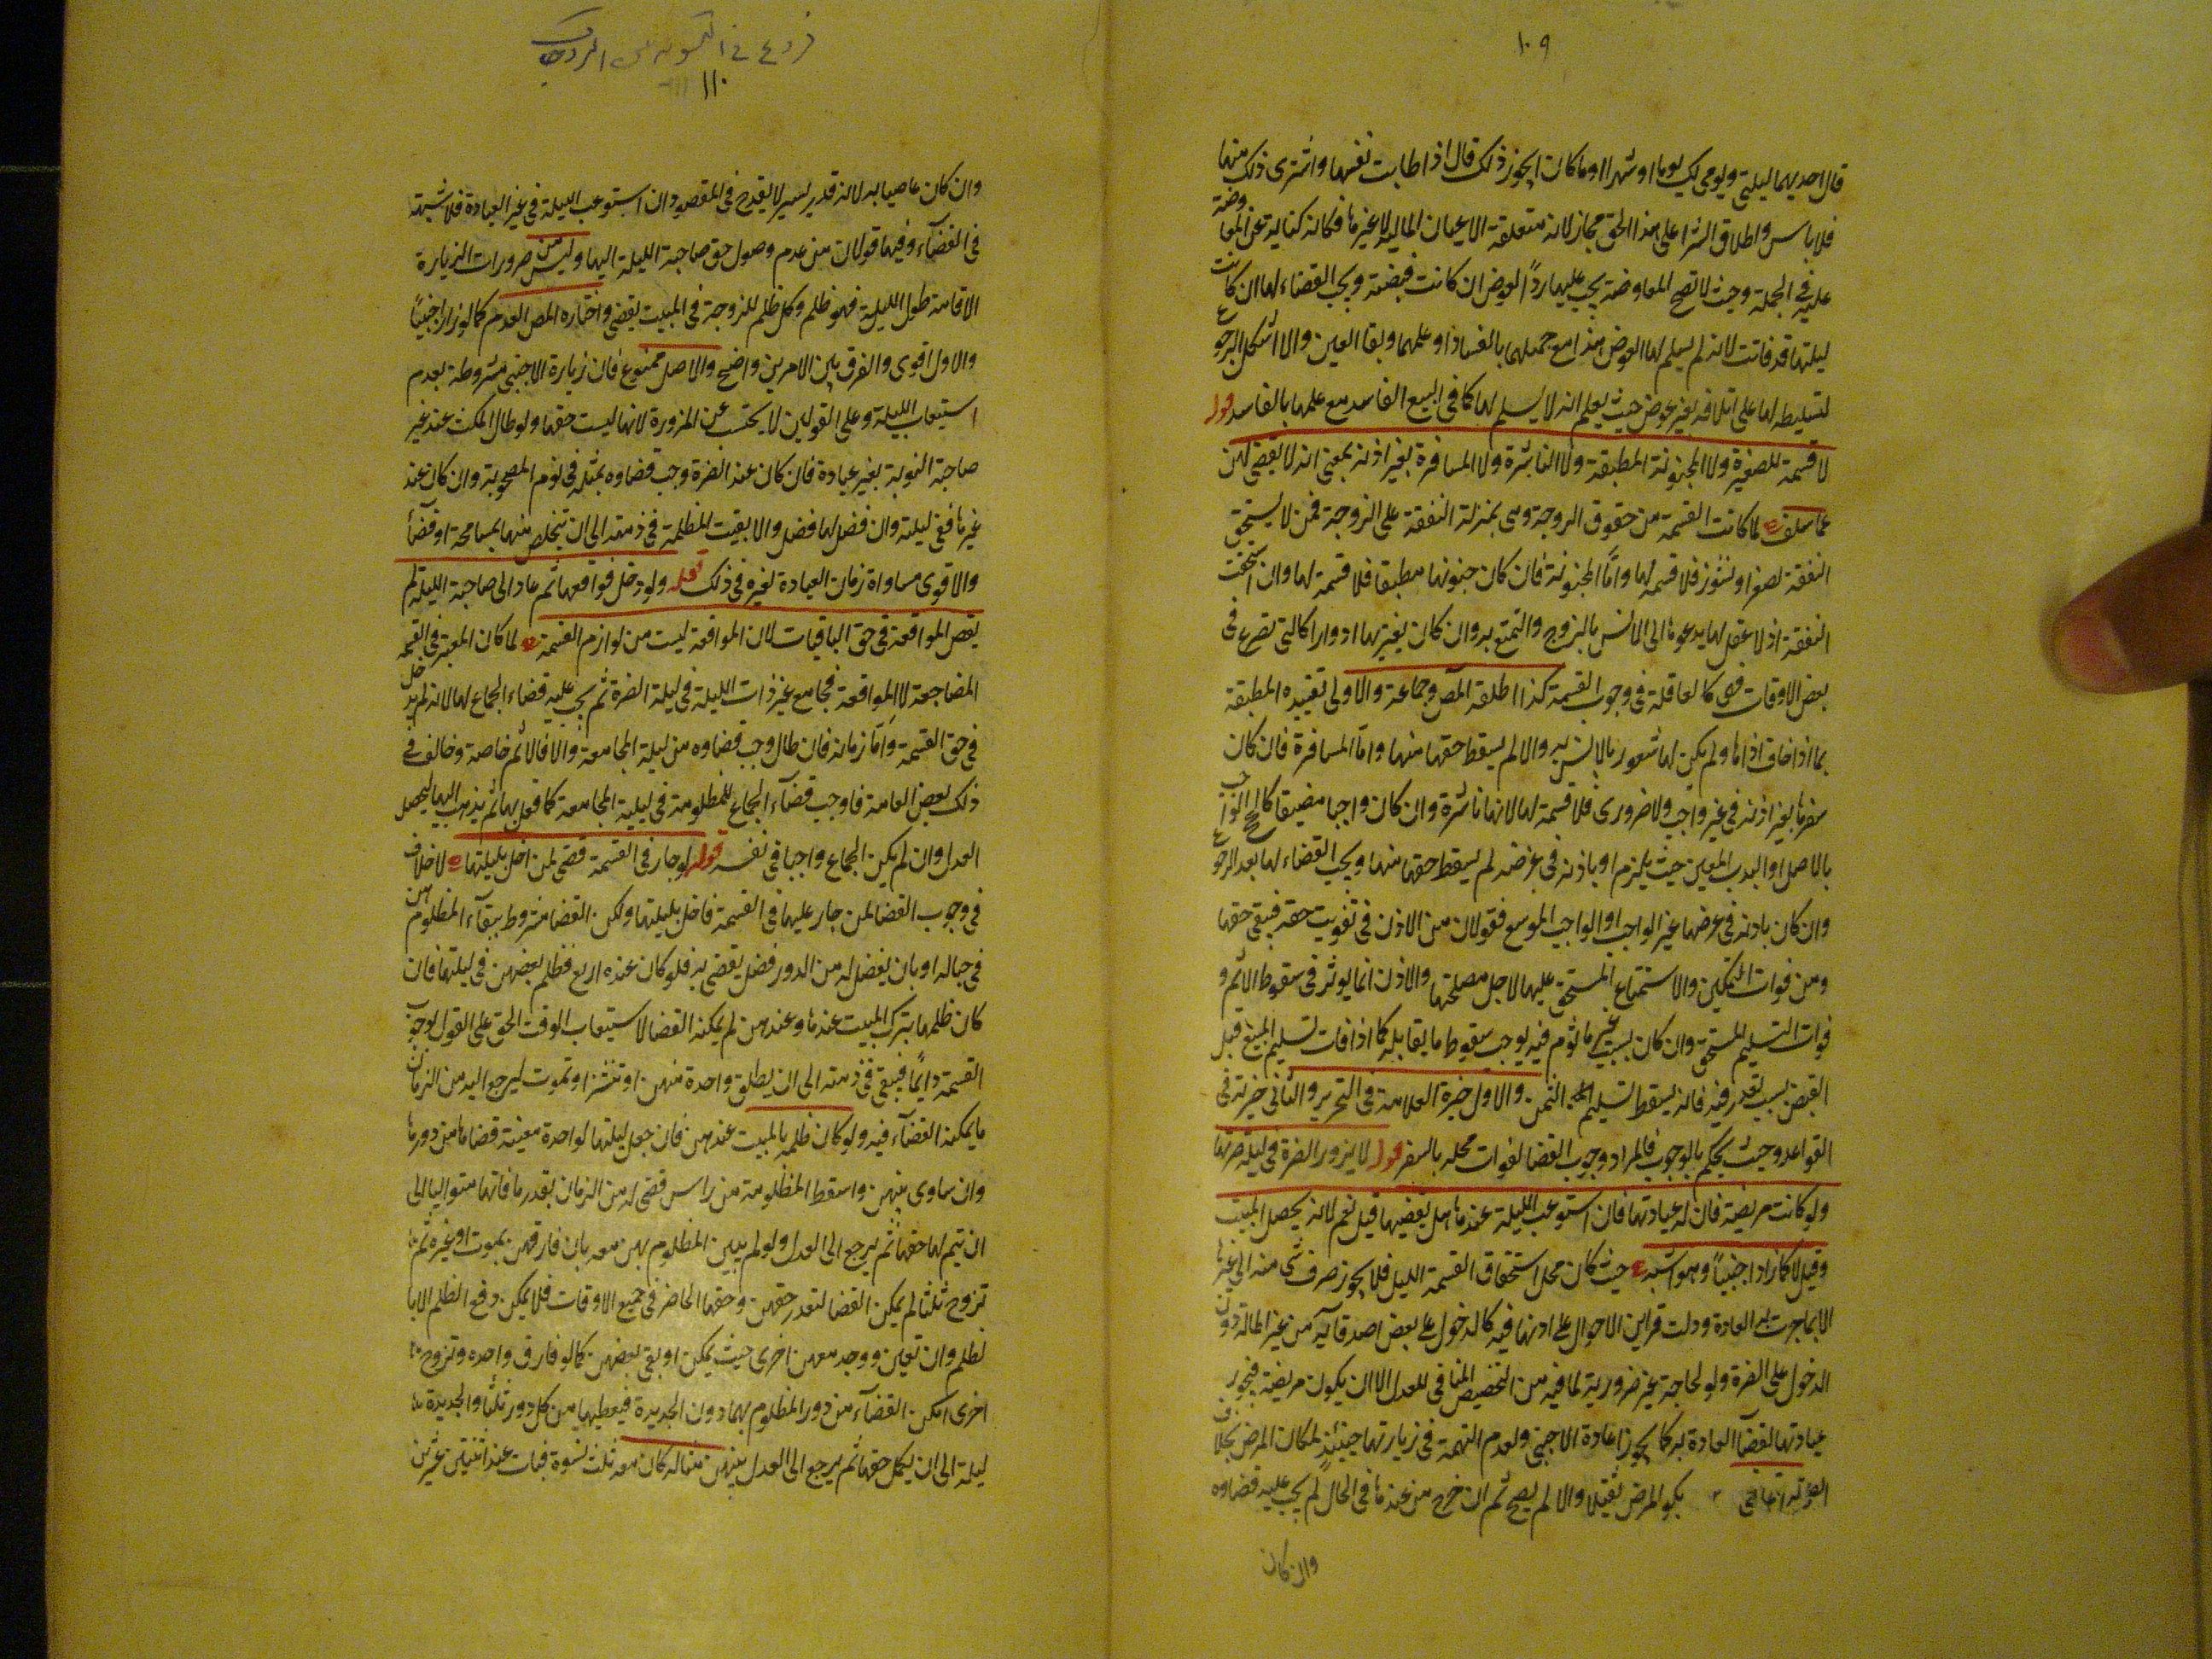 ١٠٩
قال احديهما ليلتي ويومي لك يوما او شهرا او ما كان ايجوز ذلك قال اذا طابت نفسها واشترى ذلك منها
فلا باس واطلاق الشرا على هذا الحق مجاز لانه متعلقه الاعيان المالية لا غيرها فكانه كناية عن المعاوضة
عليه في الجملة وحيث لا تصح المعاوضة يجب عليها ردّ العوض ان كانت قبضته ويجب القضاء لها ان كانت
ليلتها قد فاتت لانه لم يسلم لها العوض هذا مع جهلهما بالفساد او علمهما وبقا العين والا اشكل الرجوع
لتسليطه لها على اتلافه بغير عوض حيث يعلم انه لا يسلم لها كما في البيع الفاسد مع علمها بالفاسد قوله
لا قسمة للصغيرة ولا المجنونة المطبقة ولا الناشزة ولا المسافرة بغير اذنه بمعنى انه لا يقضي لهن
عما سلف لما كانت القسمة من حقوق الزوجة وهي بمنزلة النفقة على الزوجة فمن لا يستحق
النفقة لصغر او نشوز فلا قسمة لها وامّا المجنونة فان كان جنونها مطبقا فلا قسمة لها وان استحقت
النفقة اذ لا عقل لها يدعوها الى الانس بالزوج والتمتع به وان كان يعتريها ادوارا كالتي تصرع في
بعض الاوقات فهي كالعاقلة في وجوب القسمة كذا اطلقه المص وجماعة والاولى تقييده المطبقة
بما اذا خاف اذاها ولم يكن لها شعور بالانس به والا لم يسقط حقها منها وامّا المسافرة فان كان
سفرها بغير اذنه في غير واجب ولا ضروري فلا قسمة لها لانها ناشزة وان كان واجبا مضيقا كالحج الواجب
بالاصل او النذر المعين حيث يلزم او باذنه في غرضه لم يسقط حقها منها ويجب القضاء لها بعد الرجوع
وان كان باذنه في غرضها غير الواجب او الواجب الموسع فقولان من الاذن في تفويت حقه فيبقى حقها
ومن فوات التمكين والاستمتاع المستحق عليها لاجل مصلحتها والاذن انما يوثر في سقوط الاثم و
فوات التسليم المستحق وان كان بسبب غير ماثوم فيه يوجب سقوط ما يقابله كما اذا فات تسليم المبيع قبل
القبض بسبب تعذر فيه فانه يسقط تسليم الثمن والاول خيرة العلامة في التحرير والثاني خيرته في
القواعد وحيث يحكم بالوجوب فالمراد وجوب القضا لفوات محله بالسفر قوله لا يزور الضرة في ليلة ضرتها
ولو كانت مريضة فان له عيادتها فان استوعب الليلة عندها هل يقضيها قيل نعم لانه لم يحصل المبيت
وقيل لا كما زار اجنبيا وهو اشبه حيث كان محل استحقاق القسمة الليل فلا يجوز صرف شي منه الى غيرها
الا بما جرت به العادة ودلت قراين الاحوال على اذنها فيه كالدخول على بعض اصدقائه من غير اطالة دون
الدخول على الضرة ولو لحاجة غير ضرورية لما فيه من التخصيص المنافي للعدل الا ان يكون مريضة فيجوز
عيادتها لقضا العادة به كما يجوز عيادة الاجنبي ولعدم التهمة في زيارتها حينئذ لمكان المرض بخلاف
بكون المرض ثقيلا والا لم يصح ثم ان خرج من عندها في الحال لم يجب عليه قضاوه
وان كان
فروع في
١١٠
وان كان عاصيا به لانه قدر يسير لا يقدح في المقصود وان استوعب الليلة في غير العيادة فلا شبهة
في القضاء وفيها قولان من عدم وصول حق صاحبة الليلة اليها وليس من ضرورات الزيارة
الاقامة طول الليلة فهو ظلم وكل ظلم للزوجة في المبيت يقضى واختاره المص العدم كما لو زار اجنبيا
والاول اقوى والفرق بين الامرين واضح والاصل ممنوع فان زيارة الاجنبي مشروطة بعدم
استيعاب الليلة وعلى القولين لا يحتسب عن المزورة لانها ليست حقها ولو طال المكث عند غير
صاحبة النوبة بغير عيادة فان كان عند الضرة وجب قضاوه بمثله في نوم المصحوبة وان كان عند
غيرها ففي ليلته وان فضل لها فضل والا بقيت المظلمة في ذمته الى ان يتخلص منها بمسامحة او قضاء
والاقوى مساواة زمان العيادة لغيره في ذلك قوله ولو دخل فواقعها ثم عاد الى صاحبة الليلة لم
يقص المواقعة في حق الباقيات لان المواقعة ليست من لوازم القسمة لما كان المعتبر في القسمة
المضاجعة لا المواقعة فجامع غير ذات الليلة في ليلة الضرة ثم يجب عليه قضاء الجماع لها لانه لم يدخل
في حق القسمة وامّا زمانه فان طال وجب قضاوه من ليلة المجامعة والا فالاثم خاصة وخالف في
ذلك بعض العامة فاوجب قضاء الجماع للمظلومة في ليلة المجامعة كما فعل بها ثم يذهب اليها ليحصل
العدل وان لم يكن الجماع واجبا في نفسه قوله لو جار في القسمة قضى لمن اخل بليلتها لا خلاف
في وجوب القضا لمن جار عليها في القسمة فاخل بليلتها ولكن القضا مشروط ببقاء المظلوم بهن
في حباله او بان يفضل له من الدور فضل يقضي به فلو كان عنده اربع فظلم بعضهن في ليلتها فان
كان ظلمها بترك المبيت عندها وعندهن لم يمكنه القضا لاستيعاب الوقت الحق على القول بوجوب
القسمة دائما فيبقى في ذمته الى ان يطلق واحدة منهن او تنشز او تموت ليرجع اليه من الزمان
ما يمكنه القضاء فيه ولو كان ظلمه بالمبيت عندهن فان جعل ليلتها لواحدة معينة قضاها من دورها
وان ساوى بينهن واسقط المظلومة من راس قضى له من الزمان بقدر ما فاتها متواليا الى
ان يتم لها حقها ثم يرجع الى العدل ولو لم يبين المظلوم بهن معه بان فارقهن بموت او غيره ثم
تزوج ثلثا لم يمكن القضا لتعذر حقهن وحقها الحاضر في جميع الاوقات فلا يمكن دفع الظلم الا با
لظلم وان بقين ووجد معهن اخرى حيث يمكن او بقي بعضهن كما لو فارق واحدة وتزوج
اخرى امكن القضاء من دور المظلوم بها دون الجديدة فيعطيها من كل دور ثلثا والجديدة
ليلة الى ان يكمل حقها ثم يرجع الى العدل بينهن مثاله كان معه ثلث نسوة فبات عند اثنتين عشرين